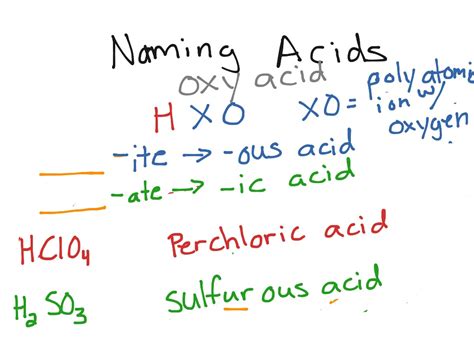 Naming Acids
oxy acid
H X O XO = polyatomic ion w/ oxygen
-ite → -ous acid
-ate → -ic acid
HClO₄ Perchloric acid
H₂SO₃ sulfurous acid